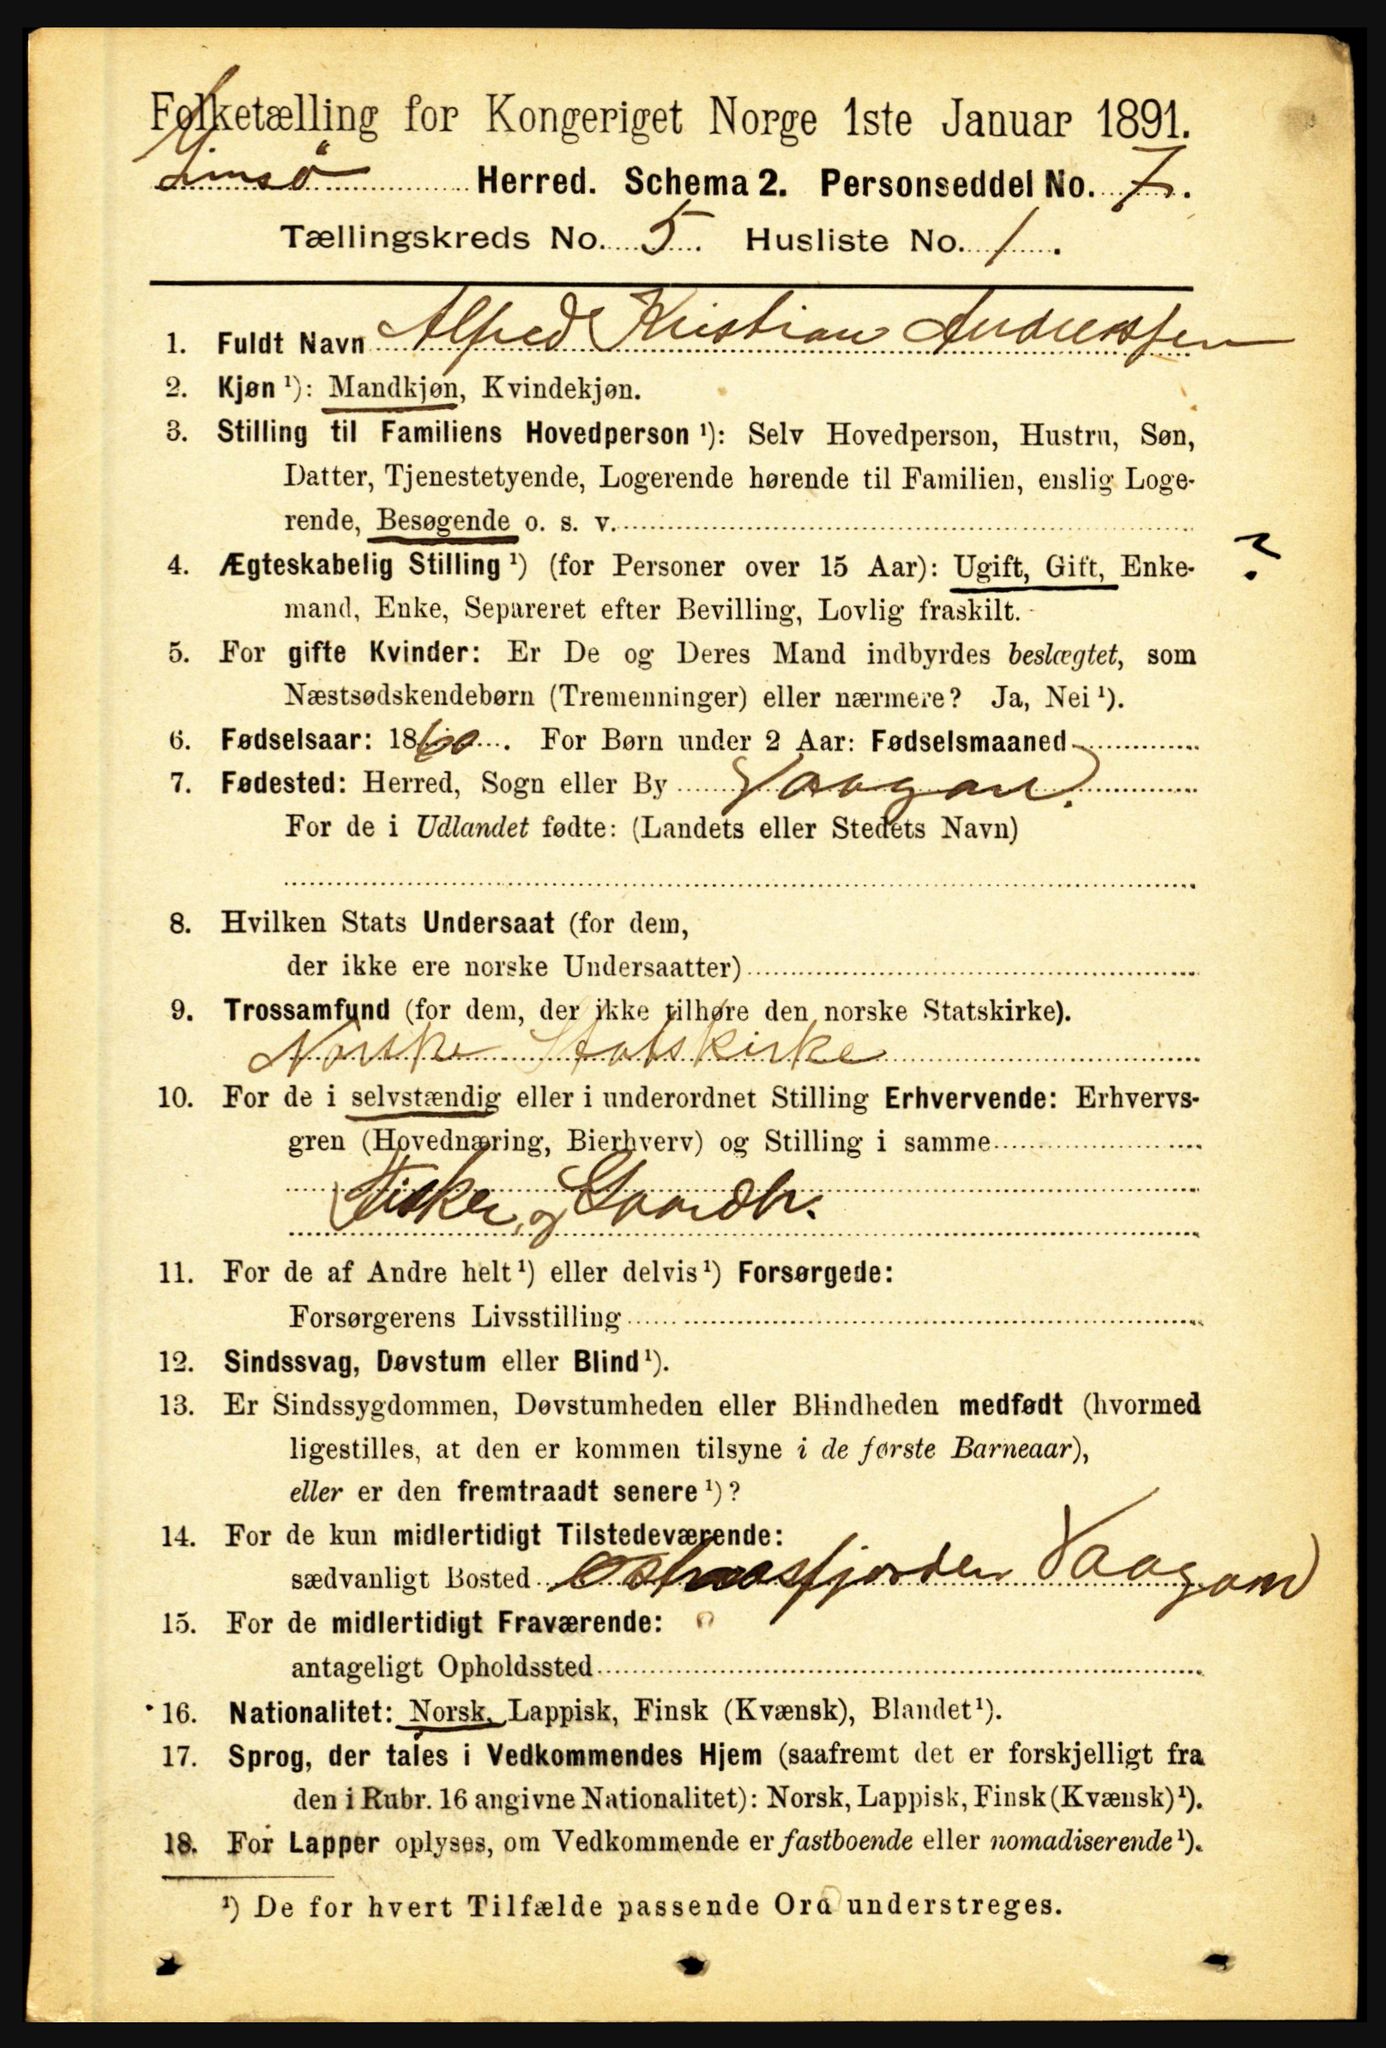 Folketælling for Kongeriget Norge 1ste Januar 1891.
Gimsø Herred. Schema 2. Personseddel No. 7.
Tællingskreds No. 5. Husliste No. 1.
1. Fuldt Navn Alfred Kristian Andreassen
2. Kjøn ¹): Mandkjøn, Kvindekjøn.
3. Stilling til Familiens Hovedperson ¹): Selv Hovedperson, Hustru, Søn,
Datter, Tjenestetyende, Logerende hørende til Familien, enslig Loge-
rende, Besøgende o. s. v.
4. Ægteskabelig Stilling ¹) (for Personer over 15 Aar): Ugift, Gift, Enke- ?
mand, Enke, Separeret efter Bevilling, Lovlig fraskilt.
5. For gifte Kvinder: Er De og Deres Mand indbyrdes beslægtet, som
Næstsødskendebørn (Tremenninger) eller nærmere? Ja, Nei ¹).
6. Fødselsaar: 1860. For Børn under 2 Aar: Fødselsmaaned
7. Fødested: Herred, Sogn eller By Vaagan.
For de i Udlandet fødte: (Landets eller Stedets Navn)
8. Hvilken Stats Undersaat (for dem,
der ikke ere norske Undersaatter)
9. Trossamfund (for dem, der ikke tilhøre den norske Statskirke).
Norske Statskirke
10. For de i selvstændig eller i underordnet Stilling Erhvervende: Erhvervs-
gren (Hovednæring, Bierhverv) og Stilling i samme
Fisker, og Gaardb.
11. For de af Andre helt ¹) eller delvis ¹) Forsørgede:
Forsørgerens Livsstilling
12. Sindssvag, Døvstum eller Blind ¹).
13. Er Sindssygdommen, Døvstumheden eller Blindheden medfødt (hvormed
ligestilles, at den er kommen tilsyne i de første Barneaar),
eller er den fremtraadt senere ¹)?
14. For de kun midlertidigt Tilstedeværende:
sædvanligt Bosted Østnæsfjorden Vaagan
15. For de midlertidigt Fraværende:
antageligt Opholdssted
16. Nationalitet: Norsk, Lappisk, Finsk (Kvænsk), Blandet ¹).
17. Sprog, der tales i Vedkommendes Hjem (saafremt det er forskjelligt fra
den i Rubr. 16 angivne Nationalitet): Norsk, Lappisk, Finsk (Kvænsk) ¹).
18. For Lapper oplyses, om Vedkommende er fastboende eller nomadiserende ¹).
¹) De for hvert Tilfælde passende Ord understreges.